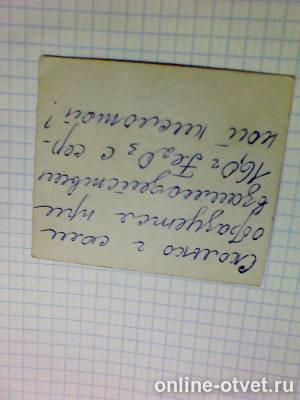 Сколько г соли
образуется при
взаимодействии
160 г Fe₂O₃ с сер-
ной кислотой?
online-otvet.ru